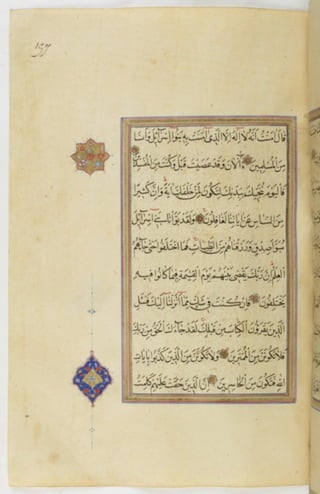 قال آمنت أنه لا إله إلا الذي آمنت به بنوا إسرائيل وأنا
من المسلمين آلآن وقد عصيت قبل وكنت من المفسدين
فاليوم ننجيك ببدنك لتكون لمن خلفك آية وإن كثيرا
من الناس عن آياتنا لغافلون ولقد بوأنا بني إسرائيل
مبوأ صدق ورزقناهم من الطيبات فما اختلفوا حتى جاءهم
العلم إن ربك يقضي بينهم يوم القيمة فيما كانوا فيه
يختلفون فإن كنت في شك مما أنزلنا إليك فسئل
الذين يقرؤن الكتاب من قبلك لقد جاءك الحق من ربك
فلا تكونن من الممترين ولا تكونن من الذين كذبوا بآيات
الله فتكون من الخاسرين إن الذين حقت عليهم كلمت